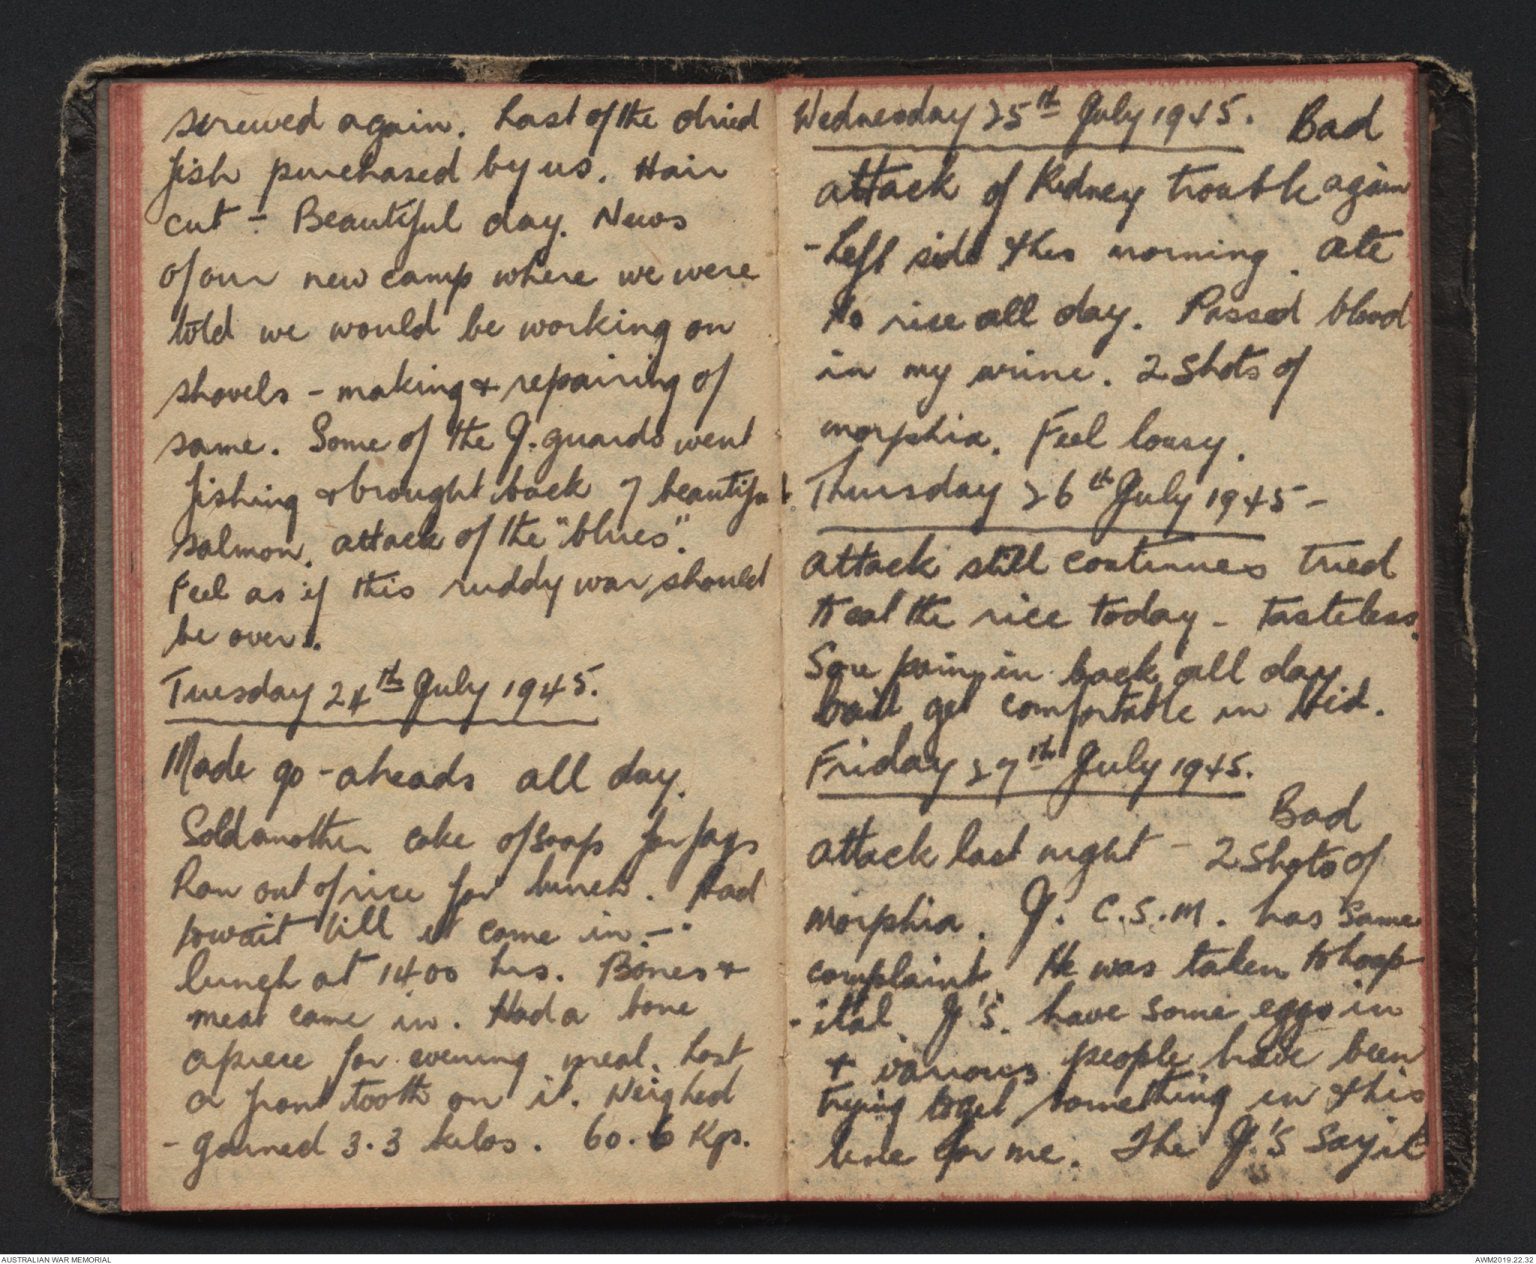 screwed again. Last of the dried
fish purchased by us. Hair
cut - Beautiful day. News
of our new camp where we were
told we would be working on
shovels - making & repairing of
same. Some of the J. guards went
fishing & brought back 7 beautiful
salmon. attack of the "blues".
Feel as if this ruddy war should
be over.
Tuesday 24th July 1945.
Made go-aheads all day.
Sold another cake of soap for fags
Ran out of rice for lunch. Had
to wait till it came in. -
lunch at 1400 hrs. Bones &
meat came in. Had a bone
apiece for evening meal. Lost
a front tooth on it. Weighed
- gained 3.3 kilos. 60.6 Kgs.
Wednesday 25th July 1945. Bad
attack of Kidney trouble again
- Left side this morning. ate
No rice all day. Passed blood
in my urine. 2 Shots of
morphia. Feel lousy.
Thursday 26th July 1945 -
attack still continues tried
to eat the rice today - tasteless.
Sore pain in back all day
can't get comfortable in bed.
Friday 27th July 1945.
Bad
attack last night - 2 Shots of
morphia. J. C.S.M. has same
complaint. He was taken to hosp-
-ital. J's. have some eggs in
& various people have been
trying to get something in this
line for me. The J's Say it
AUSTRALIAN WAR MEMORIAL
AWM2019.22.32